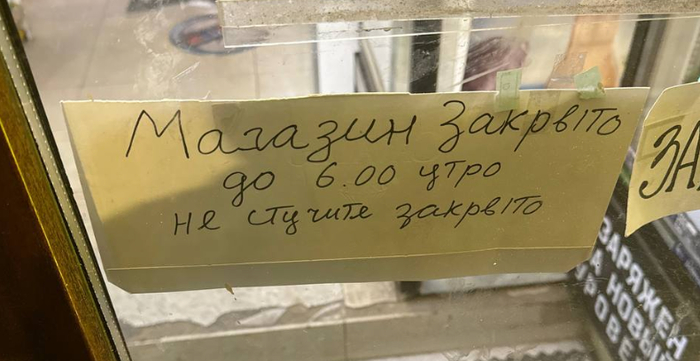 Магазин Закрвіто
до 6.00 утро
не стучите закрвіто
ЗА
ЗАРЯЖЕН
НА НОВЫ
УРОВЕ